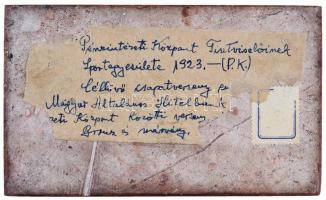 Pénzintézeti Központ Tisztviselőinek
Sportegyesülete 1923.—(P.K.)
Céllövő csapatverseny
Magyar Általános Hitelbank
zeti Központ közötti verseny
Bronz és márvány.